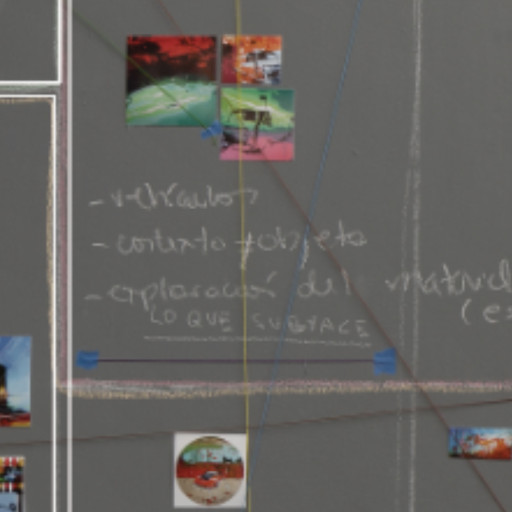 - contexto + objeto
- exploración del material
(ex
LO QUE SUBYACE